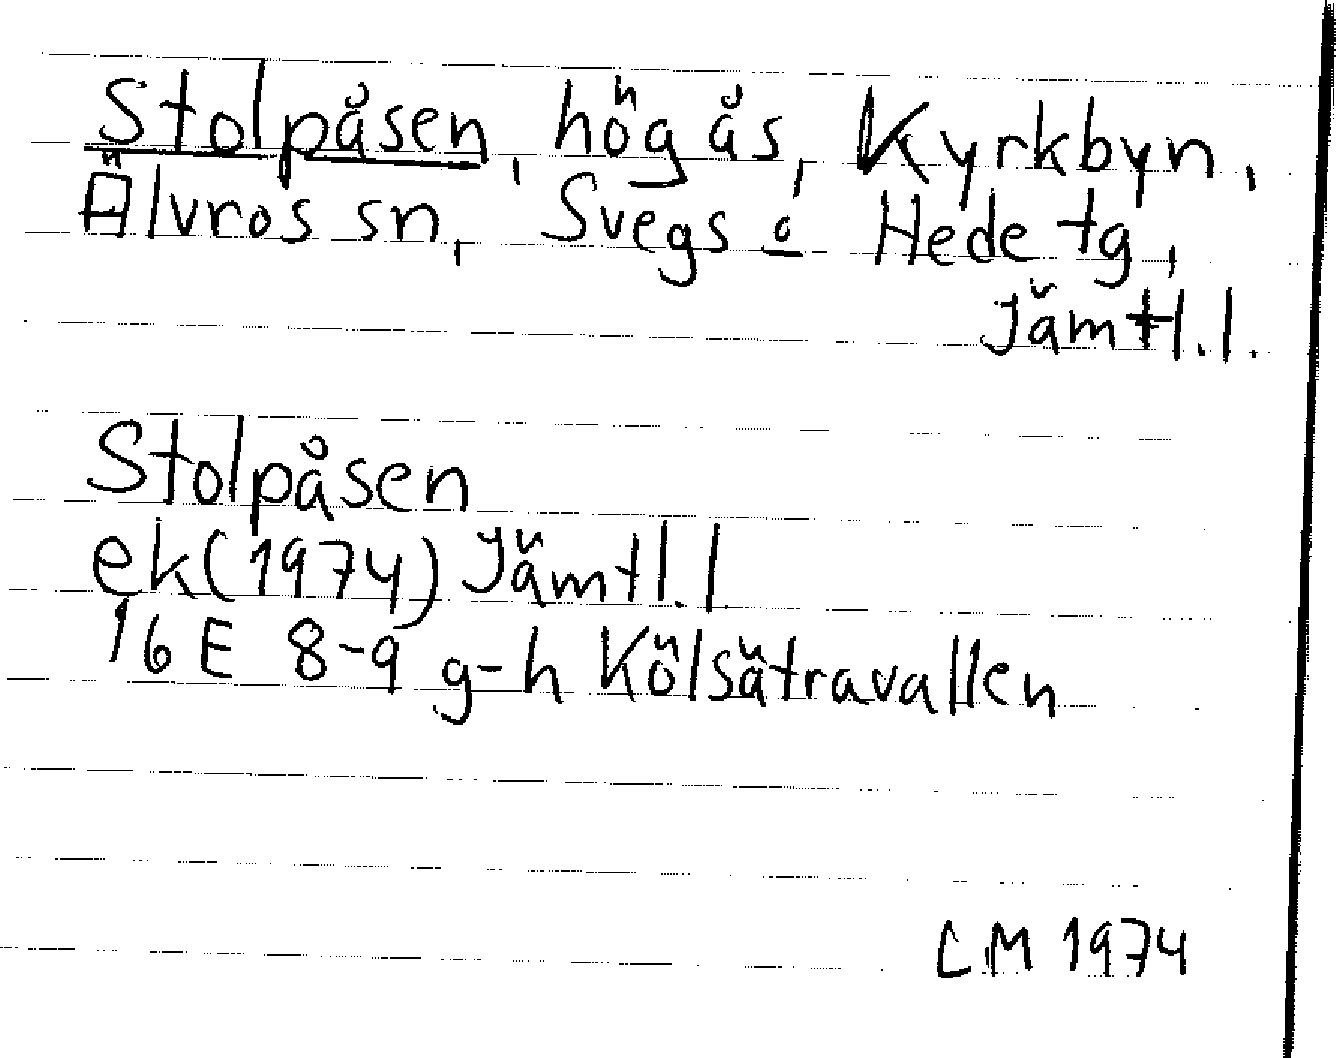 Stolpåsen, hög ås, Kyrkbyn,
Älvros sn, Svegs o Hede tg,
Jämtl.l.
Stolpåsen
ek(1974) Jämtl.l.
16 E 8-9 g-h Kölsätravallen
LM 1974